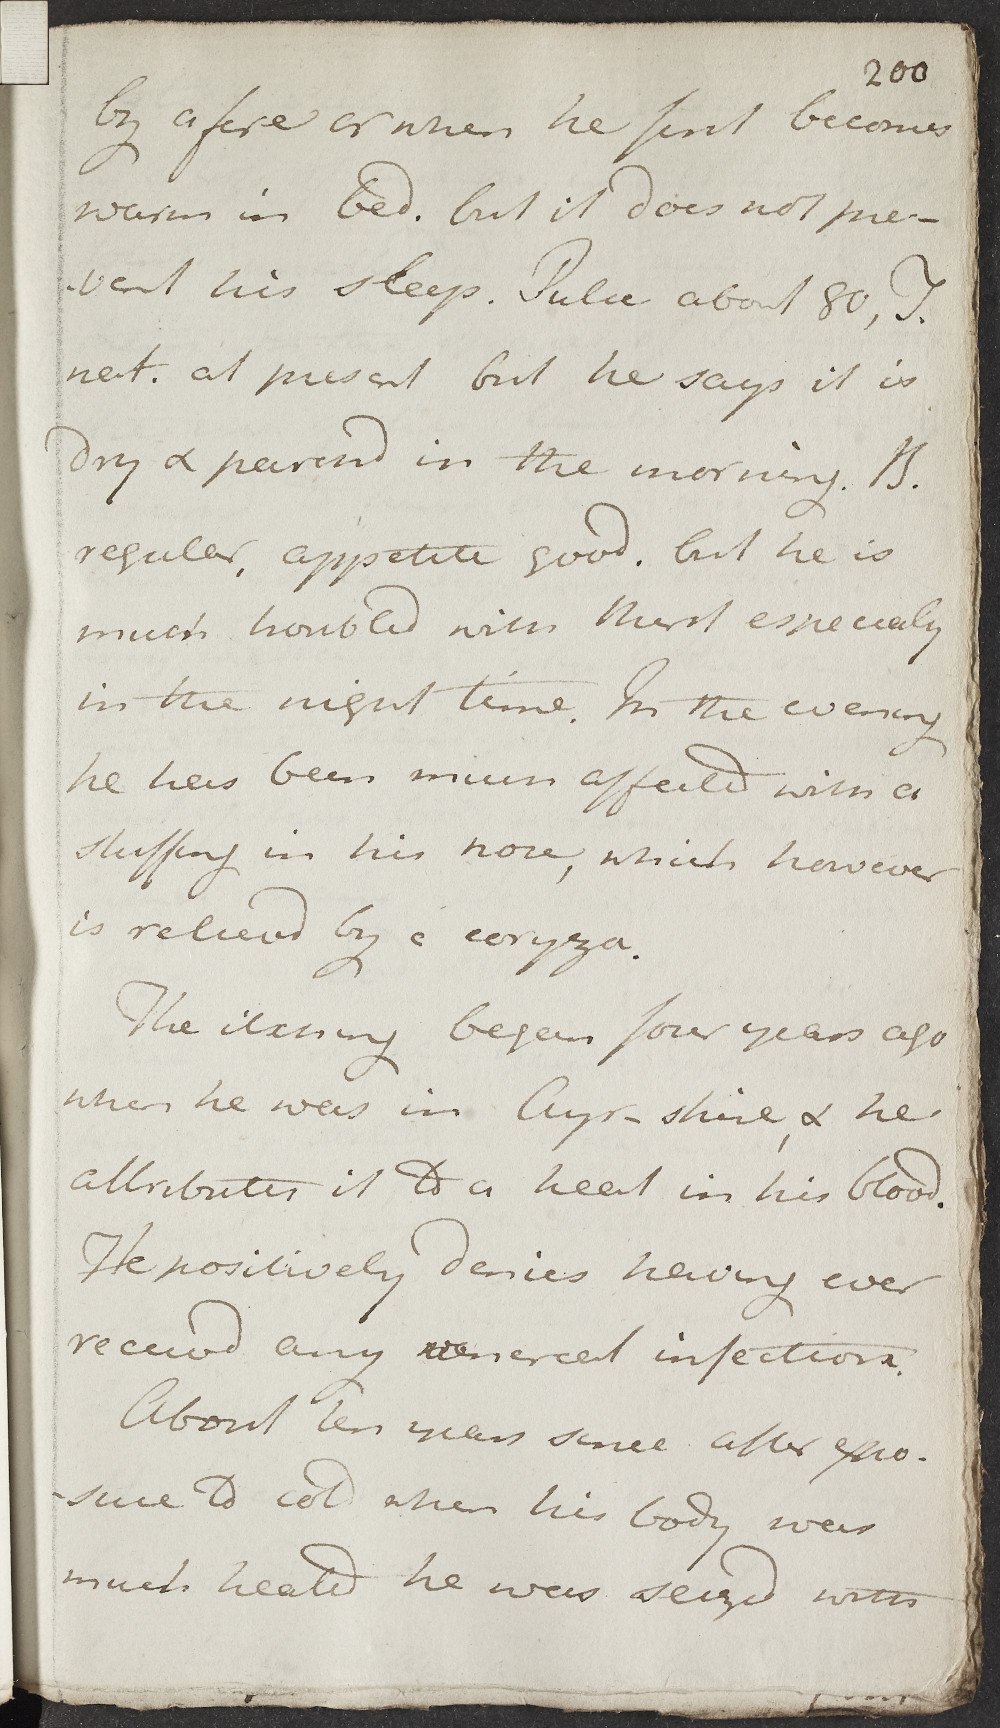 200
by a fire or when he first becomes
warm in bed. but it does not pre-
-vent his sleep. Pulse about 80, T.
nat. at present but he says it is
dry & parch'd in the morning. B.
regular, appetite good. but he is
much troubled with thirst especialy
in the night time. In the evening
he has been much affected with a
stuffing in his nose, which however
is relievd by a coryza.
The itching began four years ago
when he was in Ayr-shire, & he
attributes it to a heat in his blood.
He positively denies having ever
receivd any venereal infection.
About ten years since after expo-
-sure to cold when his body was
much heated he was seizd with